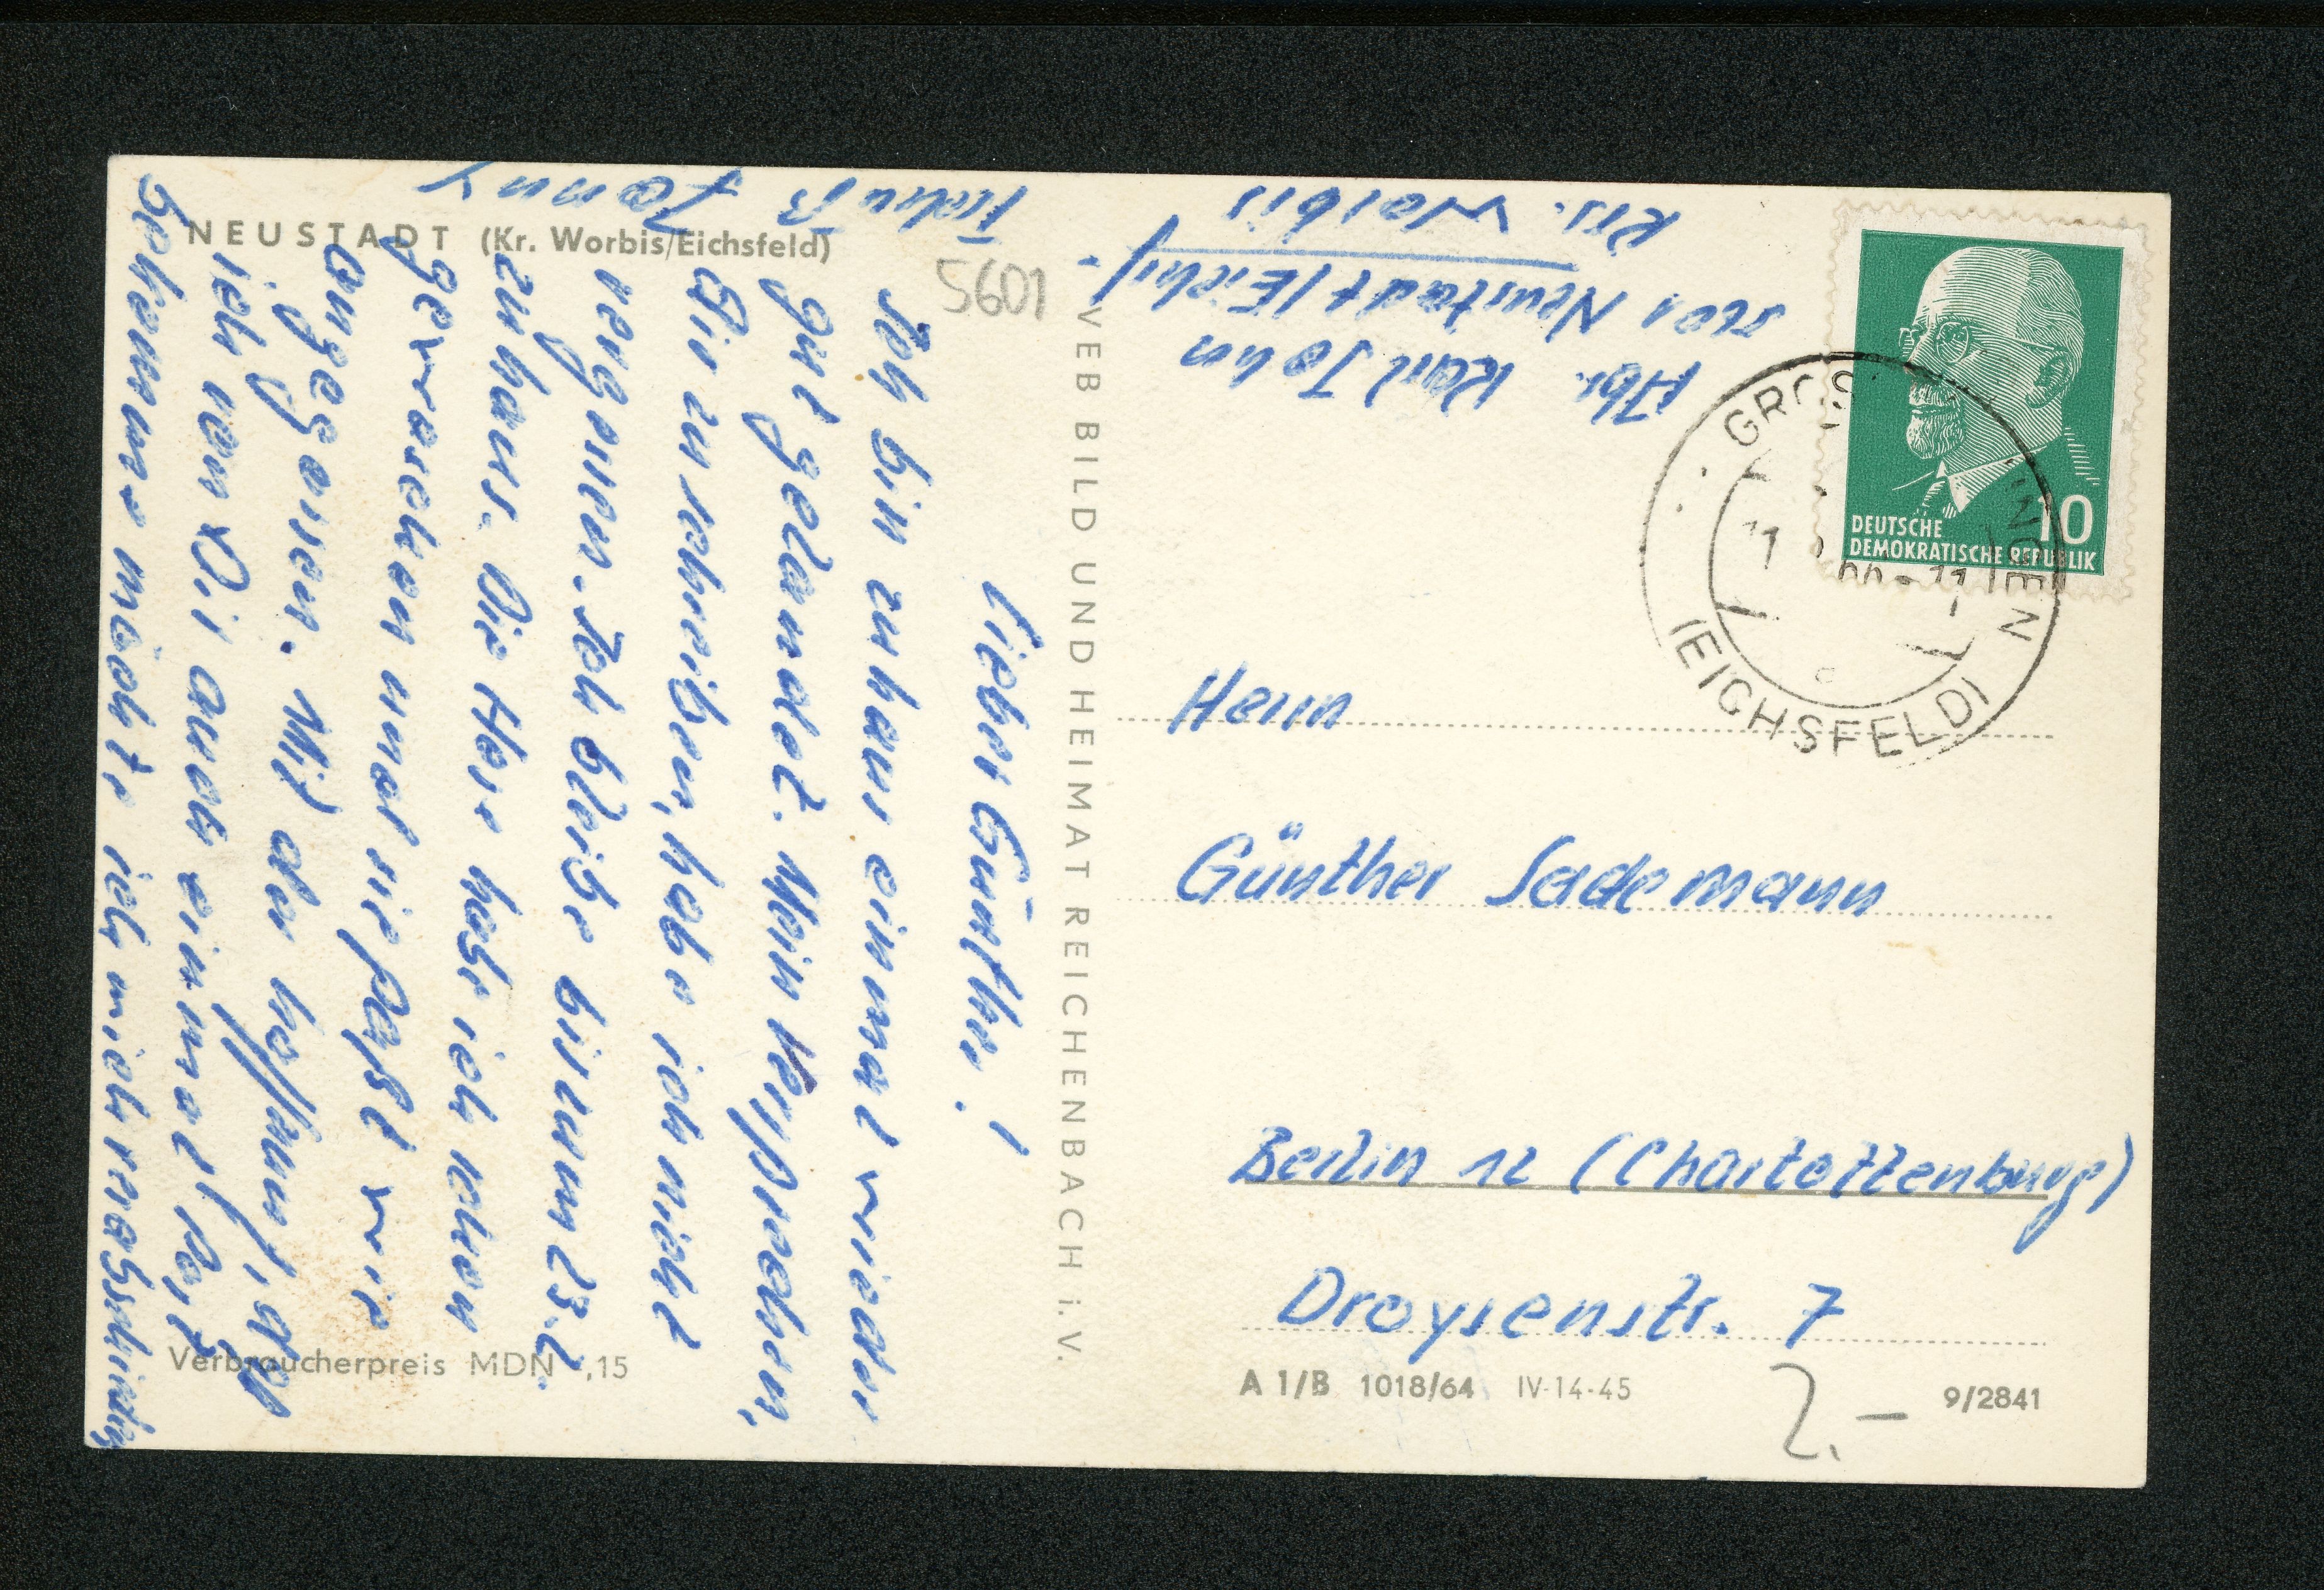 NEUSTADT (Kr. Worbis/Eichsfeld)
5601
Lieber Günther!
Ich bin zuhaus einmal wieder
gut gelandet. Mein Versprechen,
Dir zu schreiben, habe ich nicht
vergessen. Ich bleibe bis zum 23.2.
zuhaus. Die Hose habe ich schon
gewaschen und sie paßt wie
angegossen. Mit der hoffnung, daß
ich von Dir auch einmal Post
bekomme möchte ich mich verabschieden
Tschüß
Jonny
VEB BILD UND HEIMAT REICHENBACH i. V.
Verbraucherpreis MDN -,15
Abs. Karl John
5601 Neustadt/Eichsf.
Krs. Worbis
DEUTSCHE
DEMOKRATISCHE REPUBLIK
10
IEICHSFELDI
Herrn
Günther Sademann
Berlin 12 (Charlottenburg)
Droysenstr. 7
A 1/B 1018/64 IV-14-45
9/2841
2.–